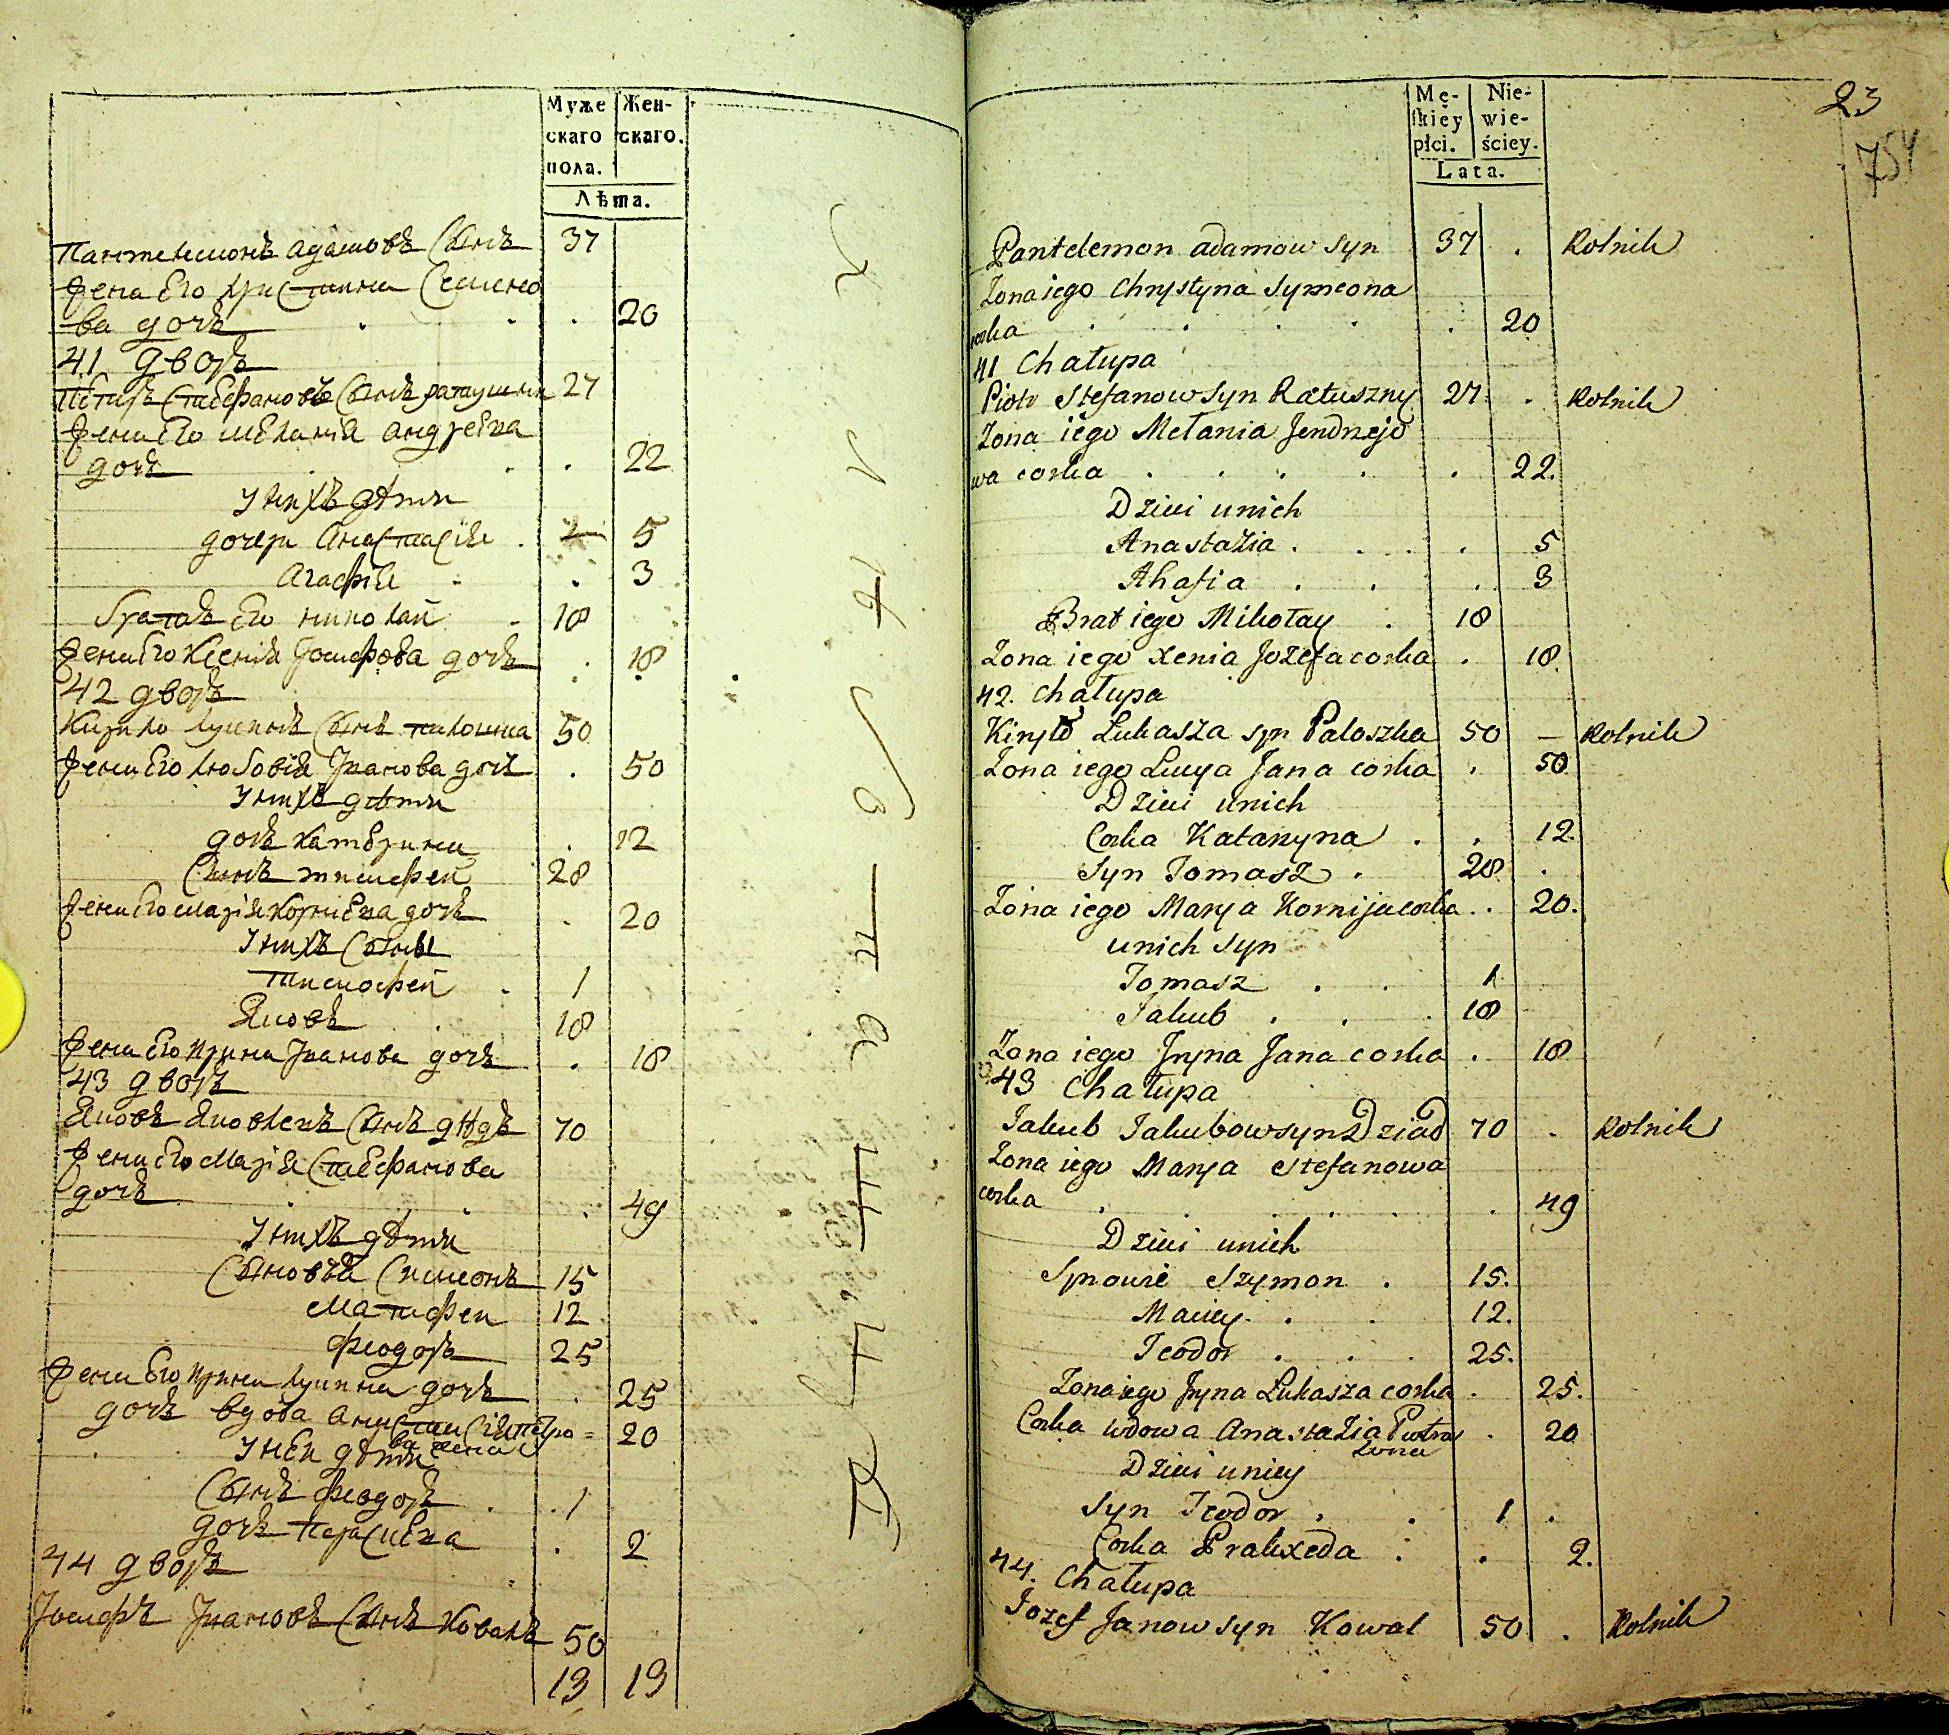 Муже
скаго
пола.
Жен-
скаго.
Лѣта.
Пантелимонъ адамовъ Сынъ 37
Жена Его Христина Семено
ва дочь . . . 20
41 дворъ
Петръ Стефановъ Сынъ ратушни 27
Жена Его Меланія андреева
дочь . . . 22
Унихъ дѣти
дочери Анастасія . 5
Агафія . . 3
братъ Его николай . 18
Жена Его Ксенія Іосифова дочь . 18
42 дворъ
Кирило лукинъ Сынъ палошка 50
Жена Его любовія Іванова дочь . 50
Унихъ дѣти
дочь Катерина . 12
Сынъ тимофей 28
Жена Его марія Корніева дочь . 20
Унихъ Сыны
тимофей . 1
Яковъ . . 18
Жена Его Ирина Іванова дочь . 18
43 дворъ
Яковъ Яковлевъ Сынъ дѣдъ 70
Жена Его Марія Стефанова
дочь . . . 49
Унихъ дѣти
Сыновья Симеонъ 15
Матфей 12
Феодоръ 25
Жена Его Ирина лукина дочь . 25
дочь вдова анастасія петро- 20
ва жена
Уней дѣти
Сынъ Феодоръ . . 1
дочь Параскева . 2
44 дворъ
Іосифъ Івановъ Сынъ Коваль 50
13 19
23
754
Mę-
ſkiey
płci.
Nie-
wie-
ściey.
Lata.
Pantelemon adamow syn 37 . Rolnik
Zona iego Chrystyna Symeona
corka . . . . . 20
41 Chałupa
Piotr Stefanow syn Ratuszny 27. . Rolnik
Zona iego Mełania Jendrzejo
wa corka . . . . . 22.
Dzieci unich
Anastazia . . . . 5
Ahafia . . . 3
Brat iego Mikołay . 18
Zona iego Xenia Jozefa corka . 18.
42. Chałupa
Kiryło Lukasza syn Paloszka 50 — Rolnik
Zona iego Lucya Jana corka . 50
Dzieci unich
Corka Katarzyna . . 12.
Syn Tomasz . 28 .
Zona iego Marya Kornija corka . . 20.
unich syn
Tomasz . . 1
Jakub . . . 18
Zona iego Jryna Jana corka . 18
43 Chałupa
Jakub Jakubow syn Dziad 70 . Rolnik
Zona iego Marya Stefanowa
corka . . . . . 49
Dzieci unich
Synowie Szymon . 15.
Maciey . . 12.
Teodor . . . 25.
Zona iego Jryna Lukasza corka . 25.
Corka wdowa Anastazia Piotra . 20
zona
Dzieci uniey
Syn Teodor . . 1 .
Corka Prakxeda . . 2.
44. Chałupa
Jozef Janow syn Kowal 50 . Rolnik